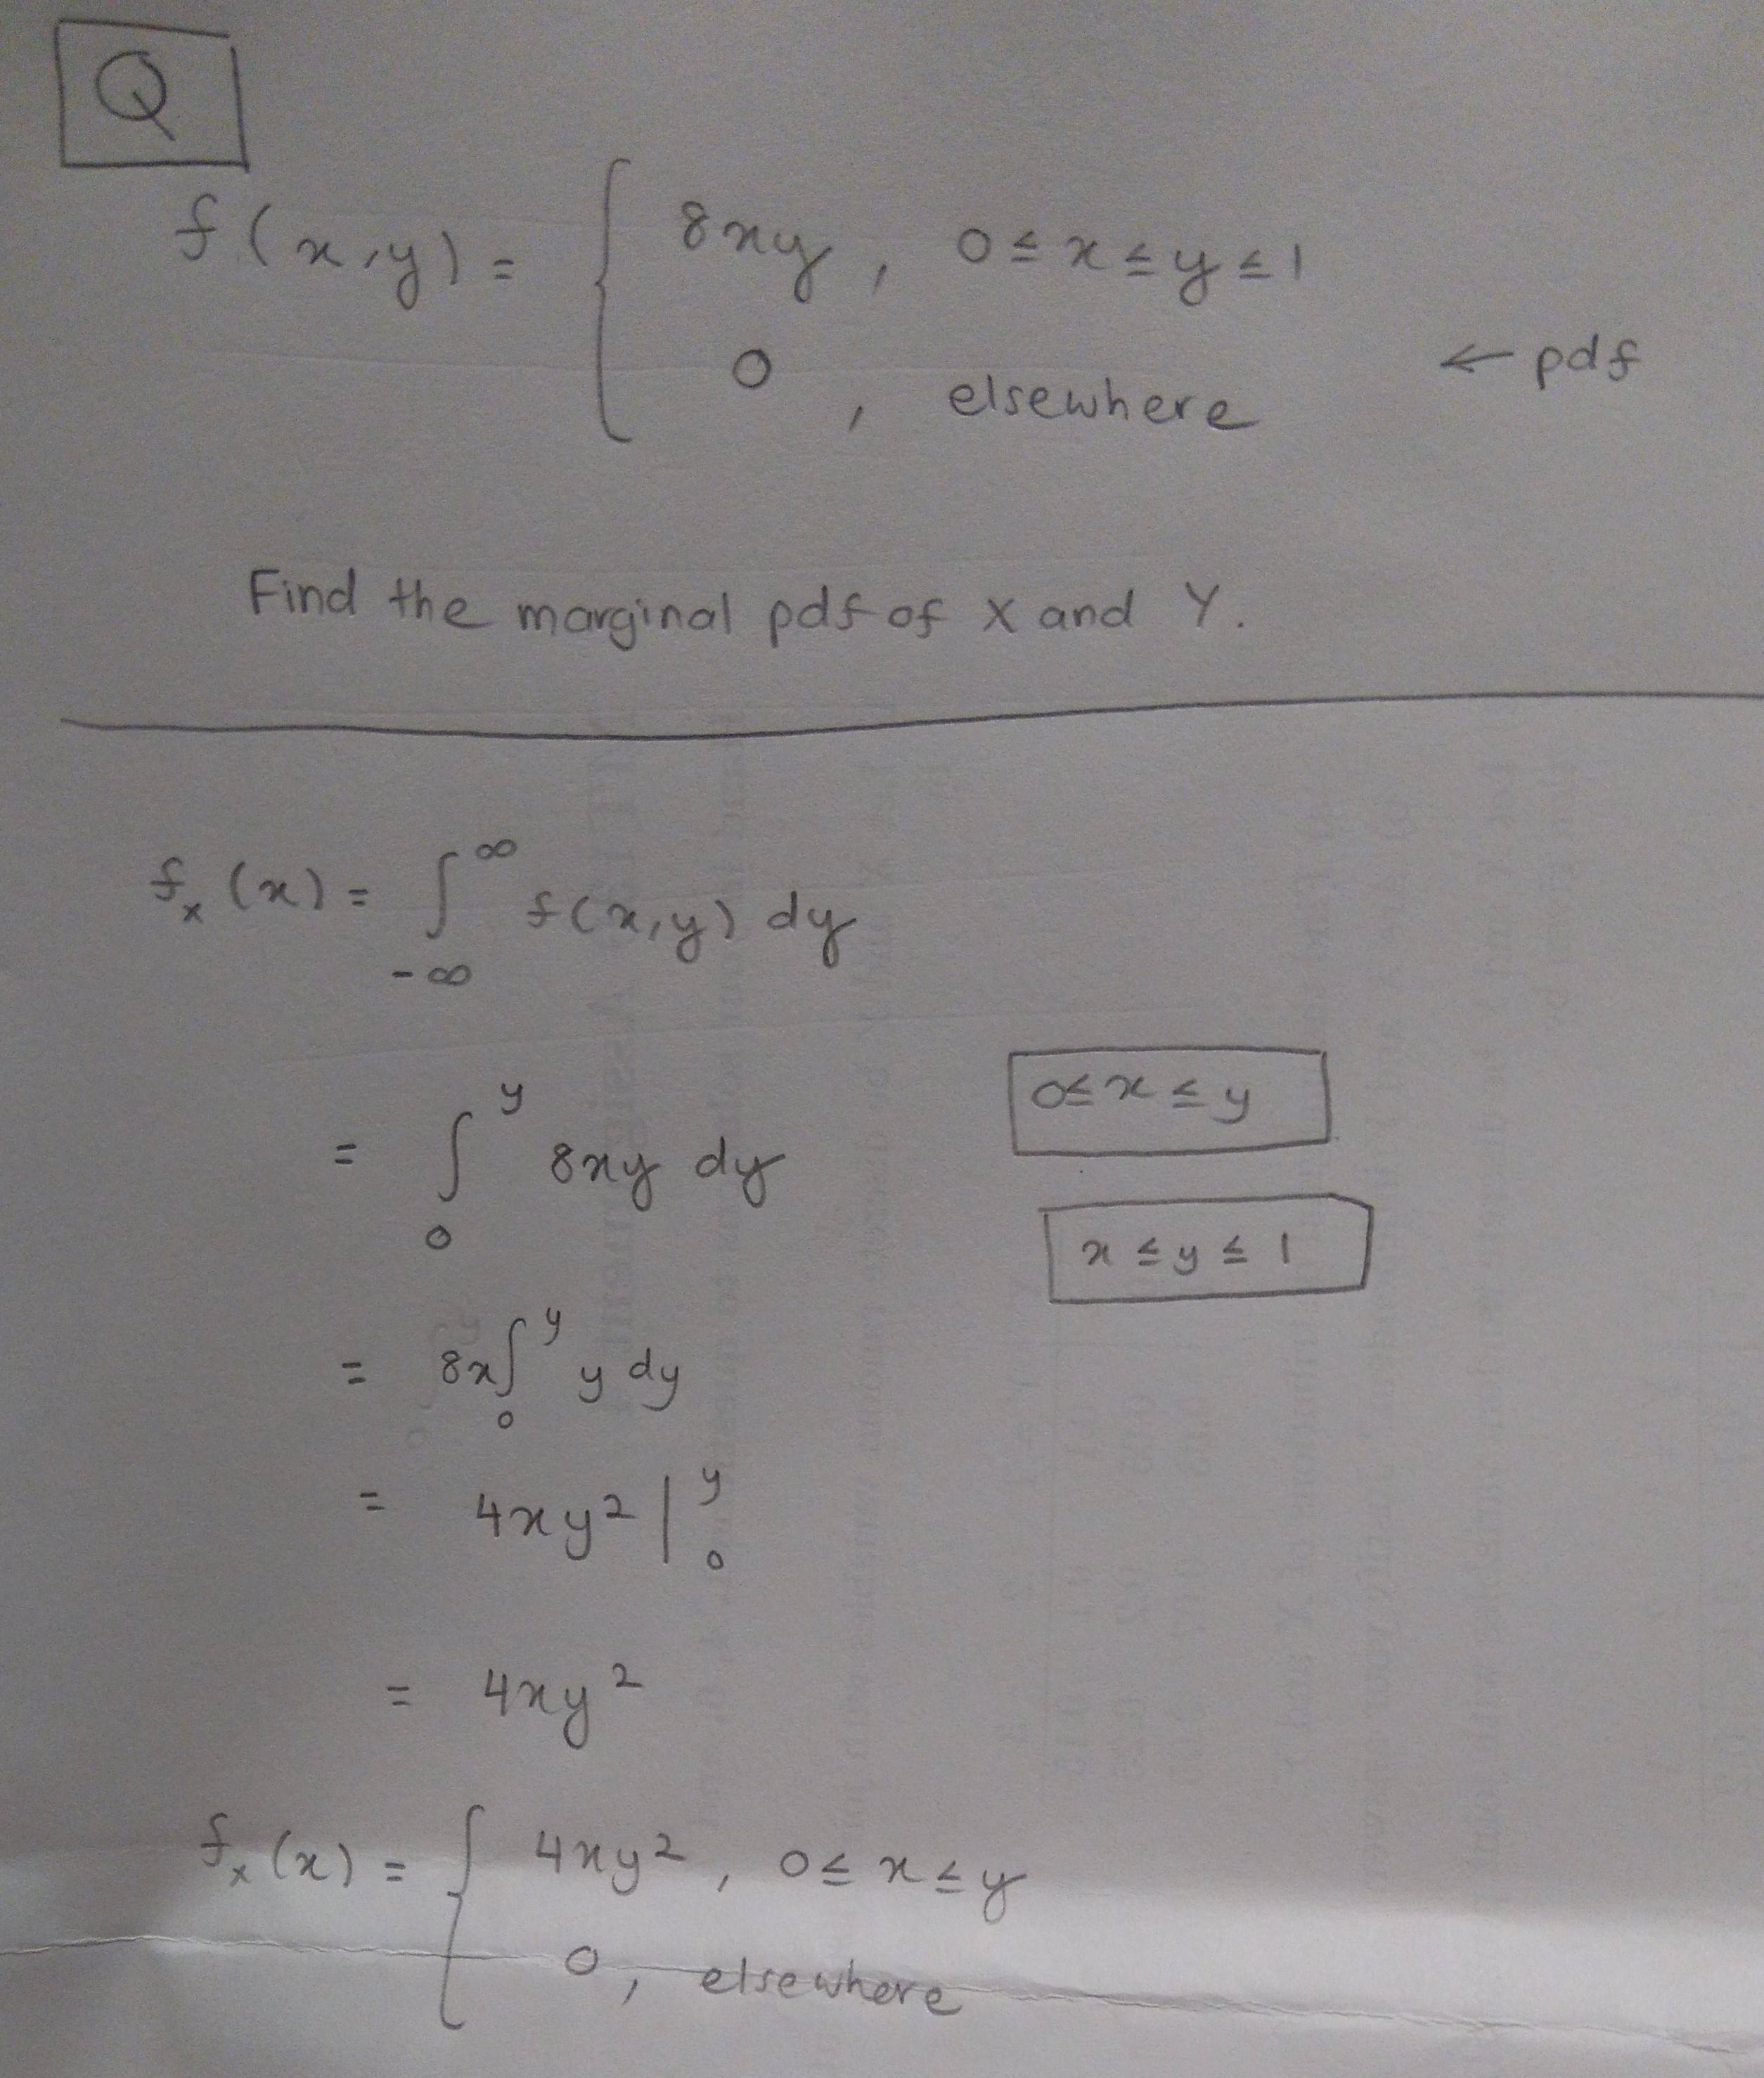 Q
f(x,y) = { 8xy, 0 ≤ x ≤ y ≤ 1
0, elsewhere
← pdf
Find the marginal pdf of X and Y.
fₓ(x) = ∫_{-∞}^{∞} f(x,y) dy
= ∫_{0}^{y} 8xy dy
0 ≤ x ≤ y
x ≤ y ≤ 1
= 8x ∫_{0}^{y} y dy
= 4xy² |_{0}^{y}
= 4xy²
fₓ(x) = { 4xy², 0 ≤ x ≤ y
0, elsewhere